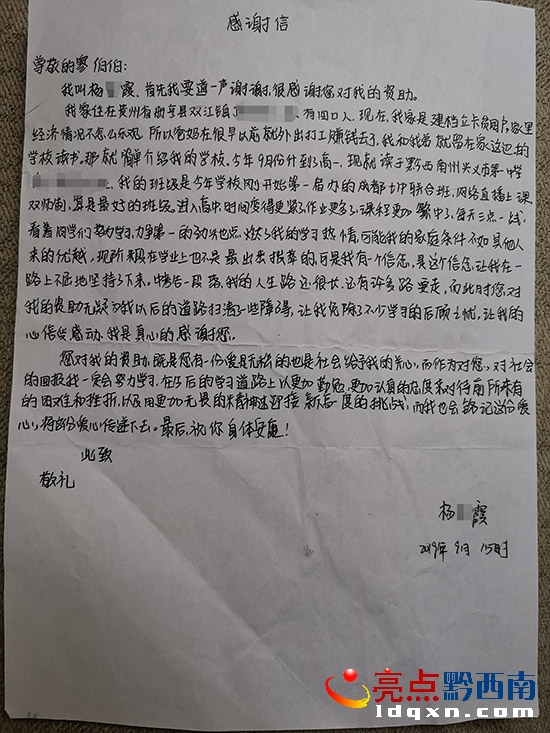 感谢信
尊敬的廖伯伯:
我叫杨 霞,首先我要道一声谢谢,很感谢您对我的资助。
我家住在贵州省西亨县双江镇 ,有四口人,现在,我家是建档立卡贫困户,家里
经济情况不怎么乐观,所以爸妈在很早以前就外出打工赚钱去了,我和我弟就留在家这边的
学校读书。那就简单介绍我的学校,今年9月份升到高一,现就读于黔西南州兴义市第一中学
,我的班级是今年学校刚开始第一届办的成都七中联合班,网络直播上课
双师制,算是最好的班级。进入高中,时间变得更紧了,作业更多了,课程更加繁中了,每天三点一线,
看着同学们努力学习,力争第一的劲头也点燃了我的学习热情,可能我的家庭条件不如其他人
来的优越,现阶段在学业上也不是最出类拔萃的,可是我有一个信念,是这个信念,让我在一
路上不屈地坚持了下来。中考后一段落,我的人生路还很长,还有许多路要走,而此时您对
我的资助无疑为我以后的道路扫清了些障碍,让我免除了不少学习的后顾之忧,让我的
心倍发感动,我是真心的感谢您。
您对我的资助,既是您有一份爱是无私的也是社会给予我的关心,而作为对您、对社会
的回报我一定会努力学习,在以后的学习道路上以更加勤勉,更加认真的态度来对待前所未有
的困难和挫折,以及用更加无畏的精神迎接新高度的挑战,而我也会铭记这份爱
心,将这份爱心传递下去。最后,祝你身体安康!
此致
敬礼
杨 霞
2019年9月15日
亮点黔西南
ldqxn.com